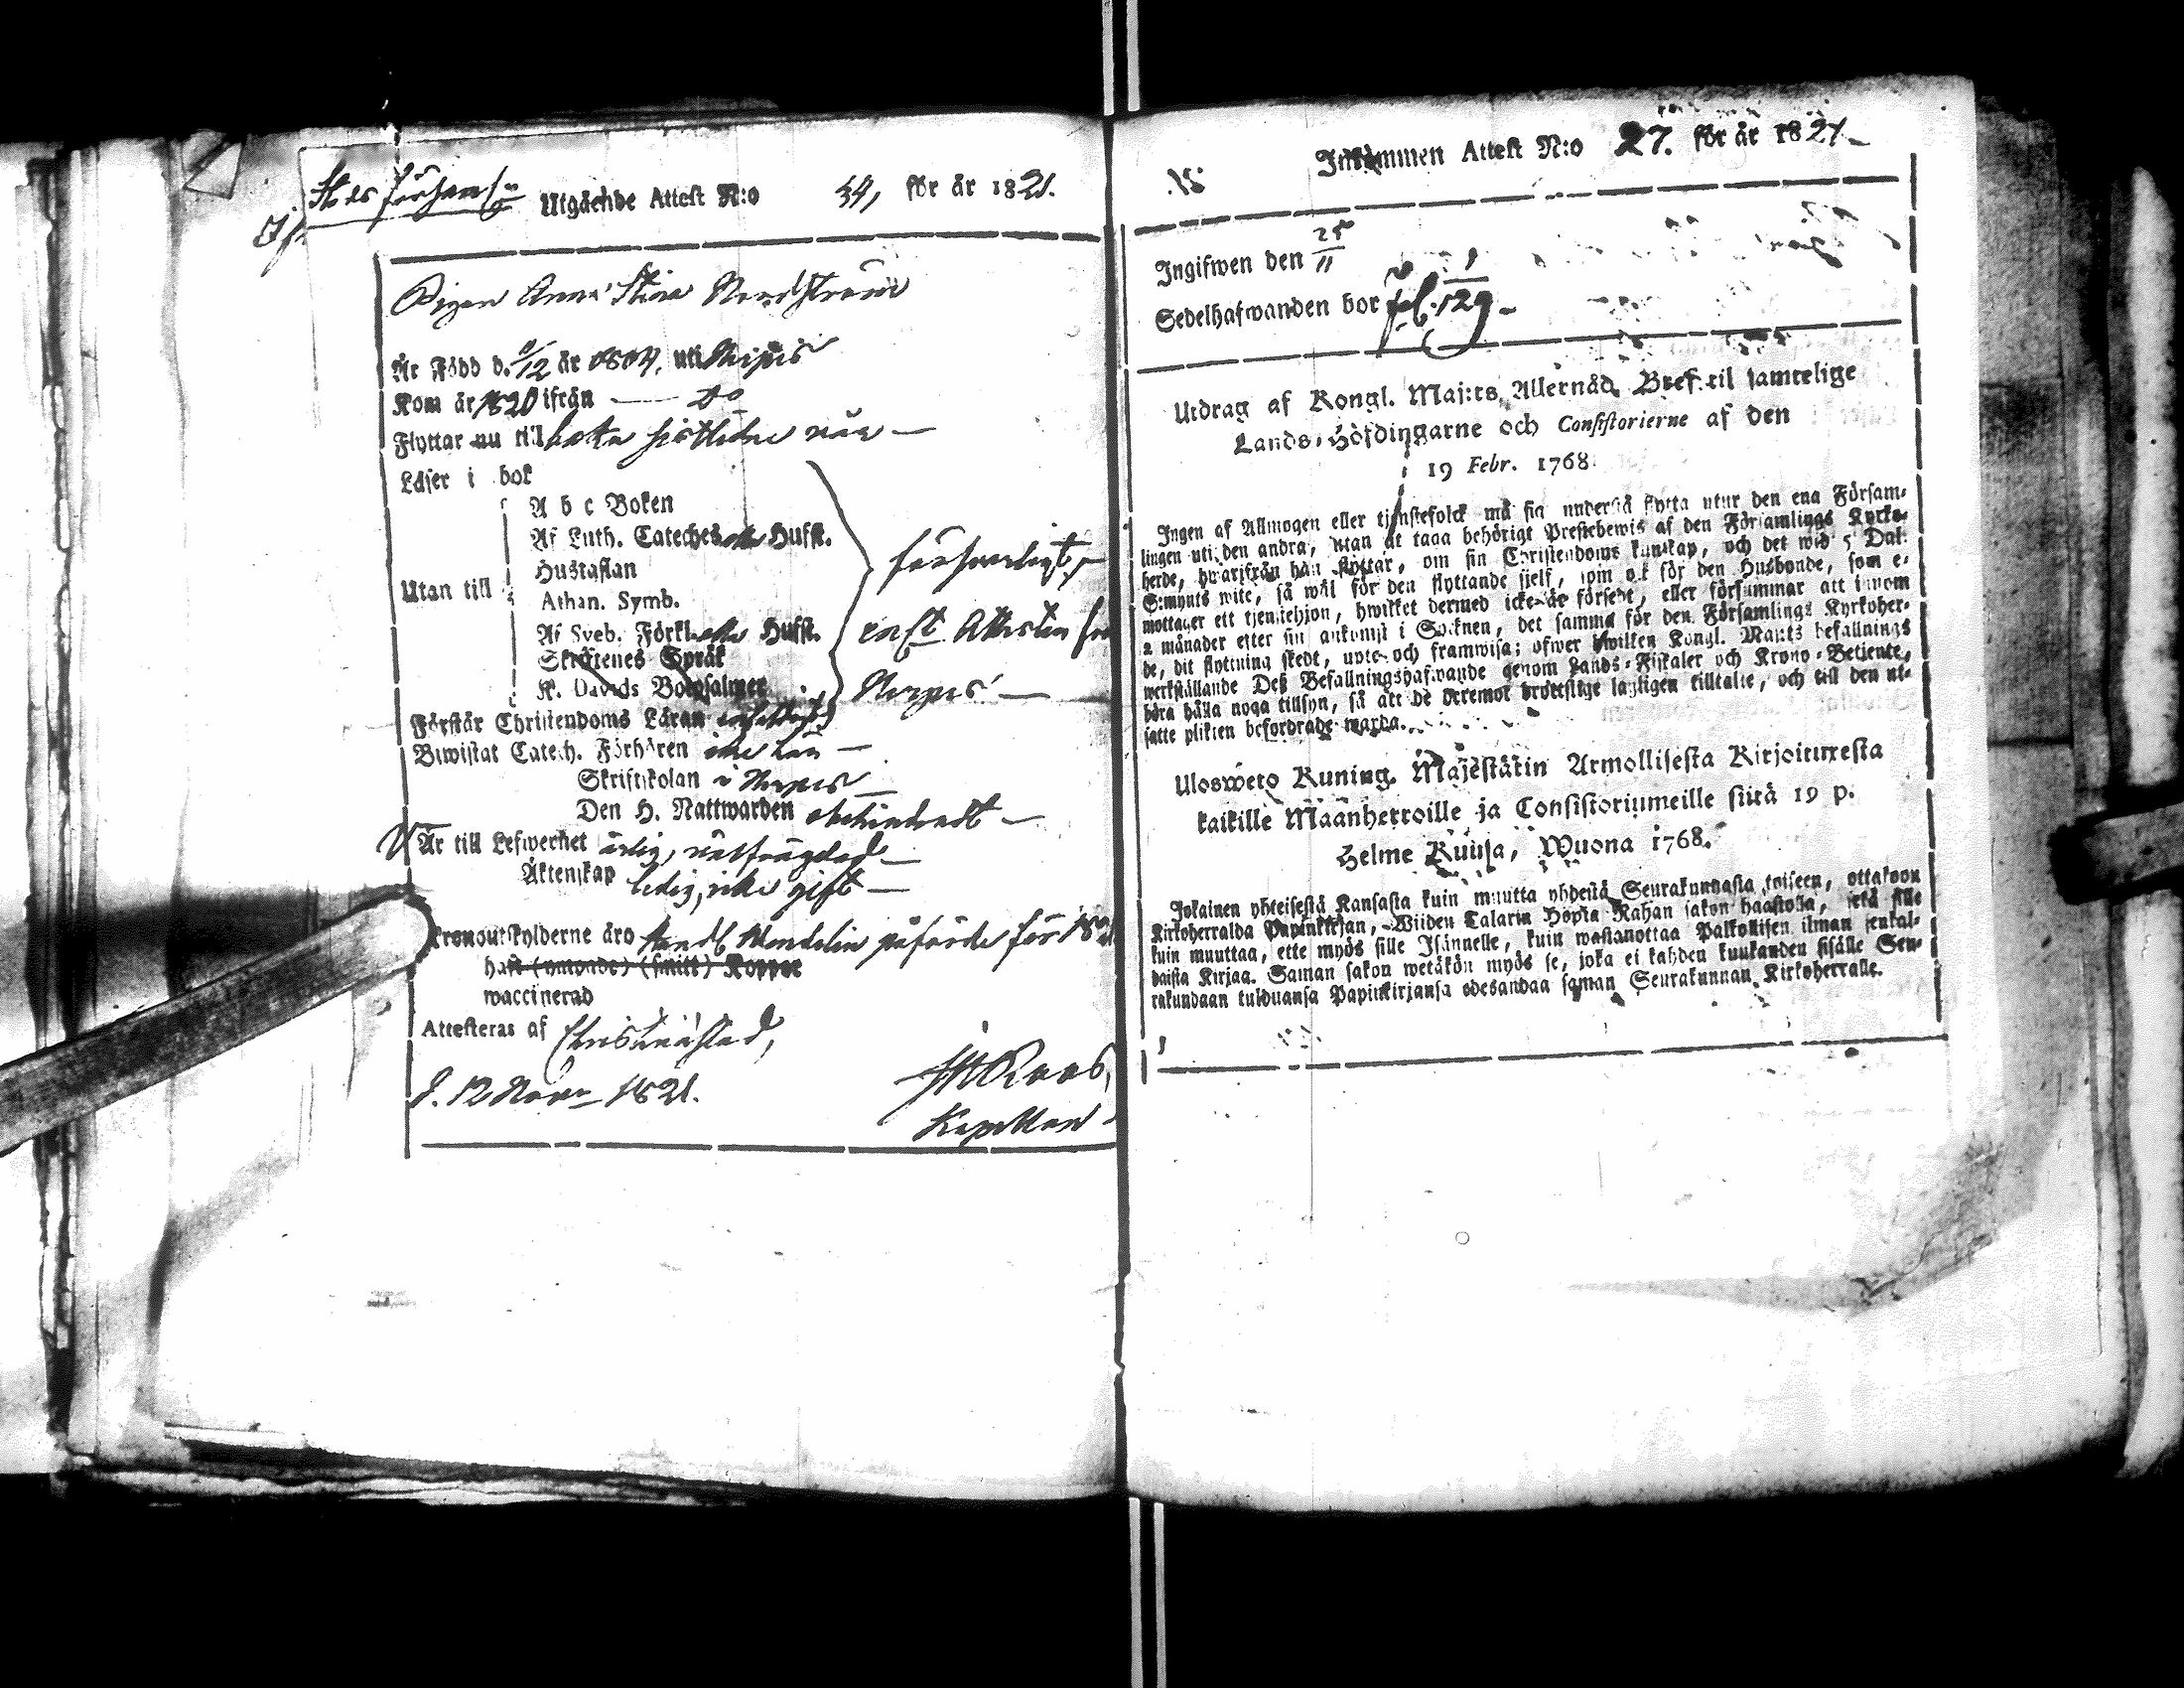 Utgående Attest N:o 34, för år 1821.
Pigan Anna Stina Nordström
Är Född d. 1/12 år 1804. uti Nerpes
Kom år 1820 ifrån — Do
Flyttar nu till
Läser i bok
A b c Boken
Af Luth. Cateches Husst.
Hustaflan
Utan till
Athan. Symb.
Af Sveb. Förkl. Husst.
Skriftenes Språk
K. Davids Botpsalmer
försvarligt,
enl. Attesten från
Nerpes —
Förstår Christendoms Läran
Biwistat Catech. Förhören
Skriftskolan i Nerpes —
Den H. Nattwarden obehindradt —
Är till Lefwernet ärlig, välfrägdad —
Äktenskap ledig, icke gift —
Kronoutskylderne äro påförde för 1821
haft (ymonde) (smitt) Koppor
waccinerad
Attesteras af Christinæstad,
d. 12 Novr 1821.
Kapellan
Inkommen Attest N:o 27. för år 1821.
Ingifwen den 25/11
Sedelhafwanden bor fol. 129.
Utdrag af Kongl. Maj:ts Allernåd. Bref til samtelige
Lands-Höfdingarne och Consistorierne af den
19 Febr. 1768.
Ingen af Allmogen eller tjenstefolck må sig understå flytta utur den ena Försam-
lingen uti den andra, utan at taga behörigt Prestebewis af den Församlings Kyrko-
herde, hwarifrån han flyttar, om sin Christendoms kunskap, och det wid 5 Dal:
S:mynts wite, så wäl för den flyttande sjelf, som ock för den Husbonde, som e-
mottager ett tjenstehjon, hwilket dermed icke är försedt, eller försummar att innom
2 månader efter sin ankomst i Socknen, det samma för den Församlings Kyrkoher-
de, dit flyttning skedt, upte och framwisa; öfwer hwilken Kongl. Maj:ts befallnings
werkställande Deß Befallningshafwande genom Lands-Fiskaler och Krono-Betjente,
böra hålla noga tillsyn, så att de deremot brottslige lagligen tilltalte, och till den ut-
satte plikten befordrade warda.
Ulosweto Kuning. Majestätin Armollisesta Kirjoituxesta
kaikille Maanherroille ja Consistoriumeille siitä 19 p.
Helme Kuusa, Wuona 1768.
Jokainen yhteisestä Kansasta kuin muutta yhdestä Seurakunnasta toiseen, ottakoon
Kirkoherralda Papinkirjan, Wiiden Talarin Hopia Rahan sakon haastolla, sekä sille
kuin muuttaa, ette myös sille Isännelle, kuin wastanottaa Palkollisen ilman senkal-
daista Kirjaa. Saman sakon wetäkön myös se, joka ei kahden kuukauden sisälle Seu-
rakundaan tulduansa Papinkirjansa edesandaa saman Seurakunnan Kirkoherralle.